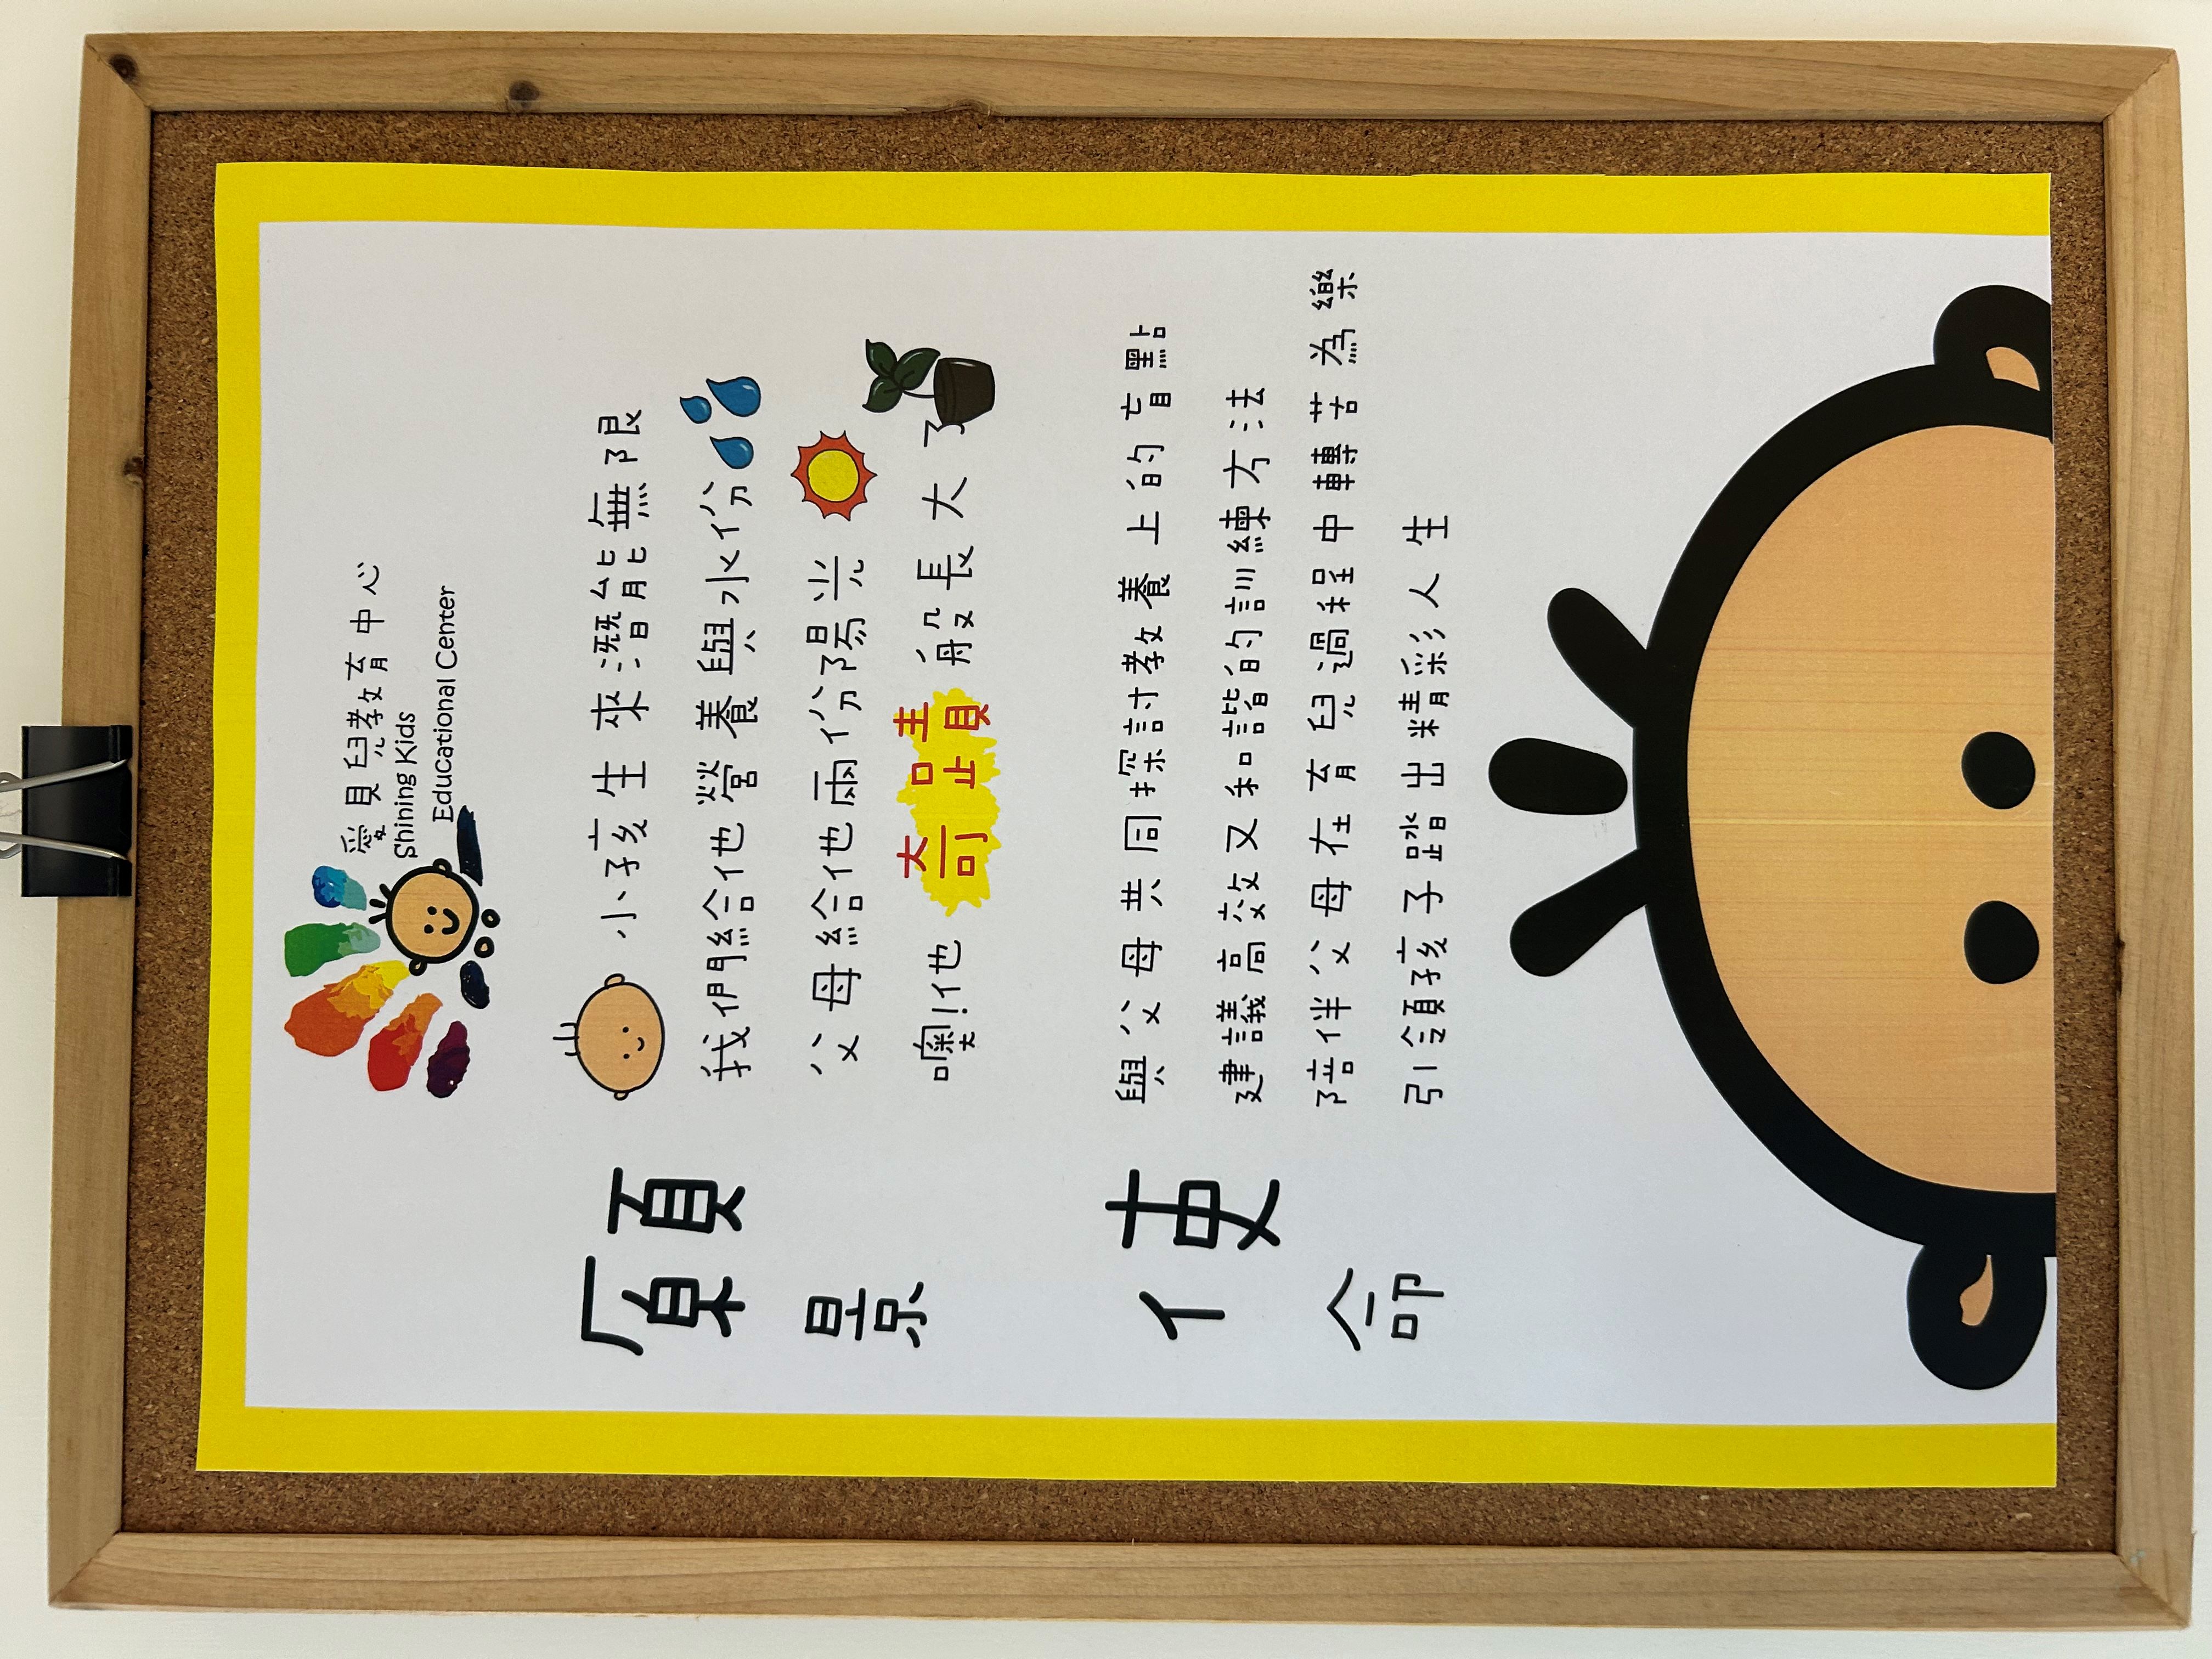 愛貝兒教育中心
Shining Kids
Educational Center
願景
小孩生來潛能無限
我們給他營養與水份
父母給他兩份陽光
噢!他奇蹟般長大了
使命
與父母共同探討教養上的盲點
建議高效又和諧的訓練方法
陪伴父母在育兒過程中轉苦為樂
引領孩子踏出精彩人生